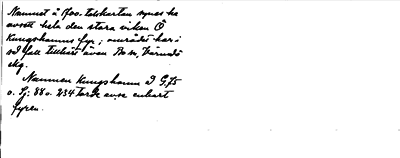 Namnet å 1700. talskartan synes ha
avsett hela den stora viken Ö
Kungshamns fyr; området har i
så fall tillhört även Bo sn, Värmdö
skg.
Namnen Kungshamn I G, 75
o. Sj: 88 o. 234 torde avse enbart
fyren.